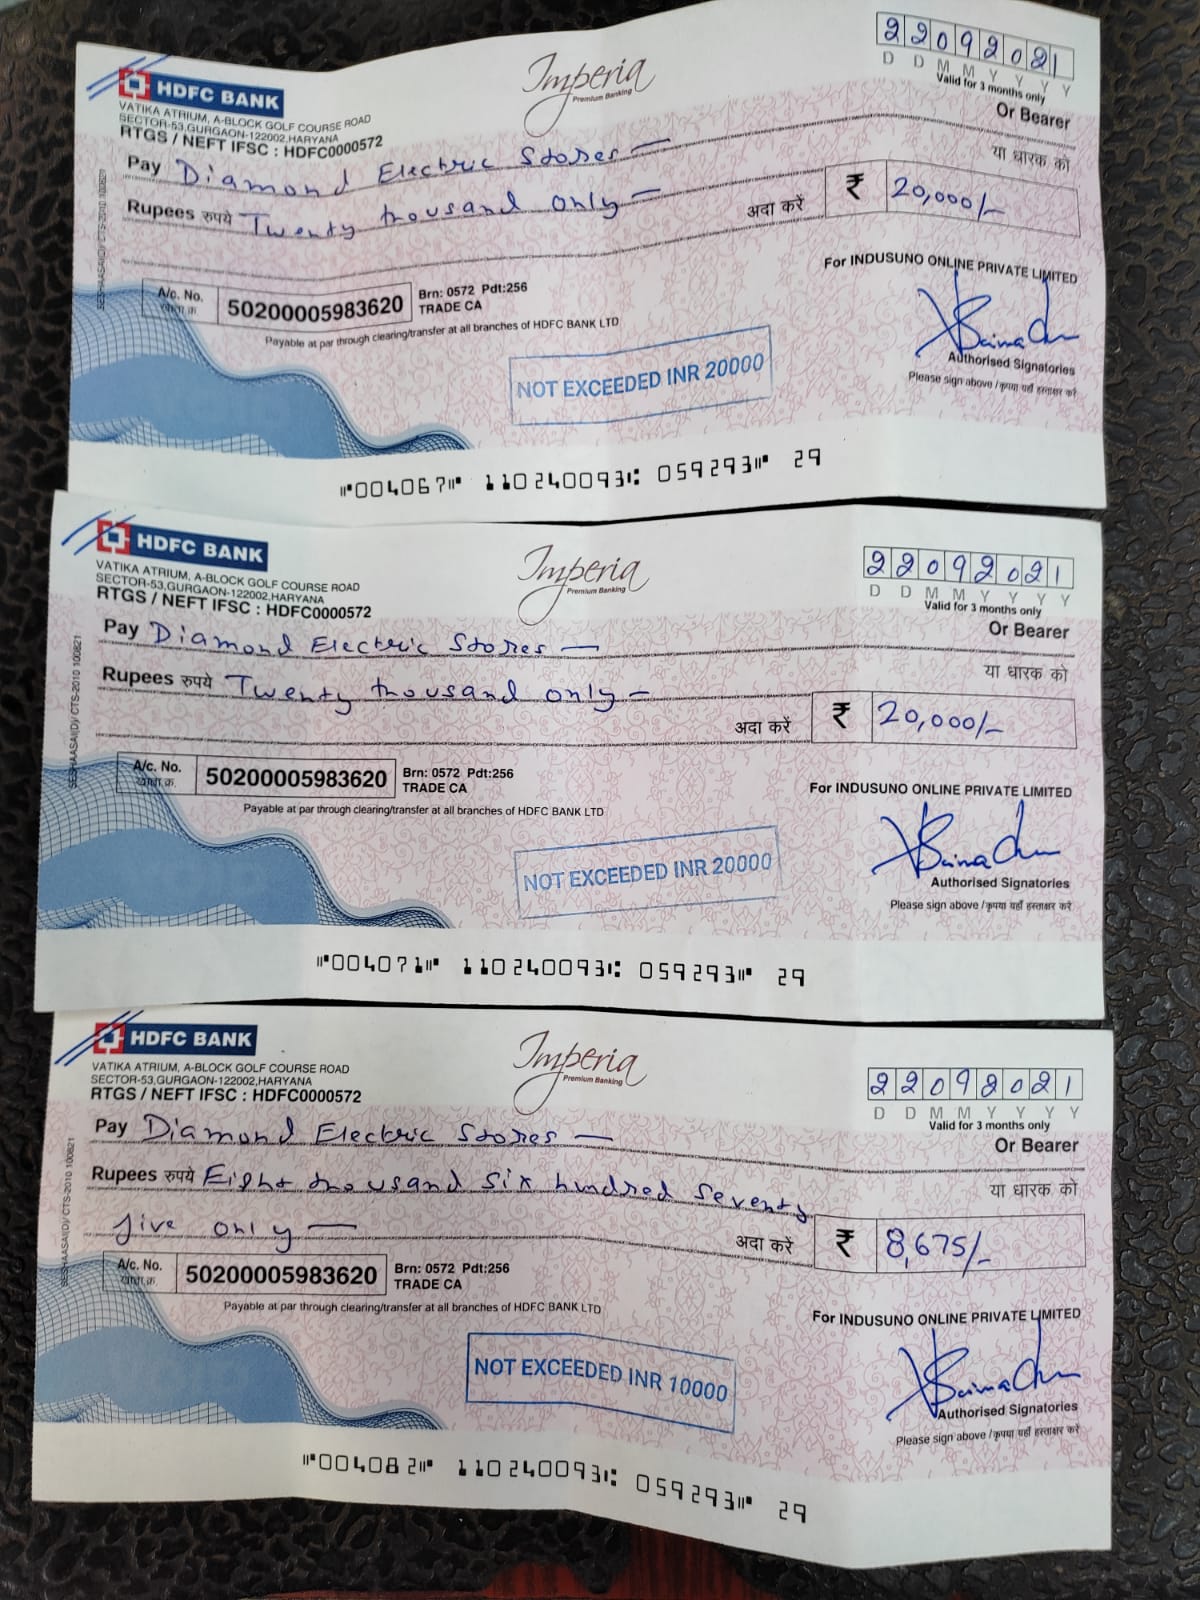 HDFC BANK
VATIKA ATRIUM, A-BLOCK GOLF COURSE ROAD
SECTOR-53,GURGAON-122002,HARYANA
RTGS / NEFT IFSC : HDFC0000572
Imperia
Premium Banking
22092021
D D M M Y Y Y Y
Valid for 3 months only
Or Bearer
Pay Diamond Electric Stores
या धारक को
Rupees रुपये Twenty thousand only
अदा करें ₹ 20,000/-
A/c. No. 50200005983620 Brn: 0572 Pdt:256
TRADE CA
Payable at par through clearing/transfer at all branches of HDFC BANK LTD
For INDUSUNO ONLINE PRIVATE LIMITED
NOT EXCEEDED INR 20000
Authorised Signatories
Please sign above / कृपया यहाँ हस्ताक्षर करें
⑈004067⑈ 110240093⑆ 059293⑈ 29
HDFC BANK
VATIKA ATRIUM, A-BLOCK GOLF COURSE ROAD
SECTOR-53,GURGAON-122002,HARYANA
RTGS / NEFT IFSC : HDFC0000572
Imperia
Premium Banking
22092021
D D M M Y Y Y Y
Valid for 3 months only
Or Bearer
Pay Diamond Electric Stores
या धारक को
Rupees रुपये Twenty thousand only
अदा करें ₹ 20,000/-
SESHAASAI(D)/ CTS-2010 100821
A/c. No. 50200005983620 Brn: 0572 Pdt:256
TRADE CA
Payable at par through clearing/transfer at all branches of HDFC BANK LTD
For INDUSUNO ONLINE PRIVATE LIMITED
NOT EXCEEDED INR 20000
Authorised Signatories
Please sign above / कृपया यहाँ हस्ताक्षर करें
⑈004071⑈ 110240093⑆ 059293⑈ 29
HDFC BANK
VATIKA ATRIUM, A-BLOCK GOLF COURSE ROAD
SECTOR-53,GURGAON-122002,HARYANA
RTGS / NEFT IFSC : HDFC0000572
Imperia
Premium Banking
22092021
D D M M Y Y Y Y
Valid for 3 months only
Or Bearer
Pay Diamond Electric Stores
या धारक को
Rupees रुपये Eight thousand six hundred seventy
five only
अदा करें ₹ 8,675/-
SESHAASAI(D)/ CTS-2010 100821
A/c. No. 50200005983620 Brn: 0572 Pdt:256
TRADE CA
Payable at par through clearing/transfer at all branches of HDFC BANK LTD
For INDUSUNO ONLINE PRIVATE LIMITED
NOT EXCEEDED INR 10000
Authorised Signatories
Please sign above / कृपया यहाँ हस्ताक्षर करें
⑈004082⑈ 110240093⑆ 059293⑈ 29